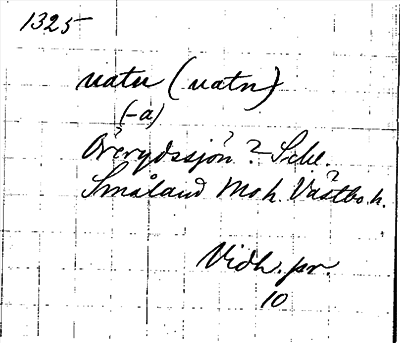 1325
uatu (uatn)
(-a)
Örerydssjön ? Sche.
Småland Mo h. Västbo h.
Vidh. pr.
10